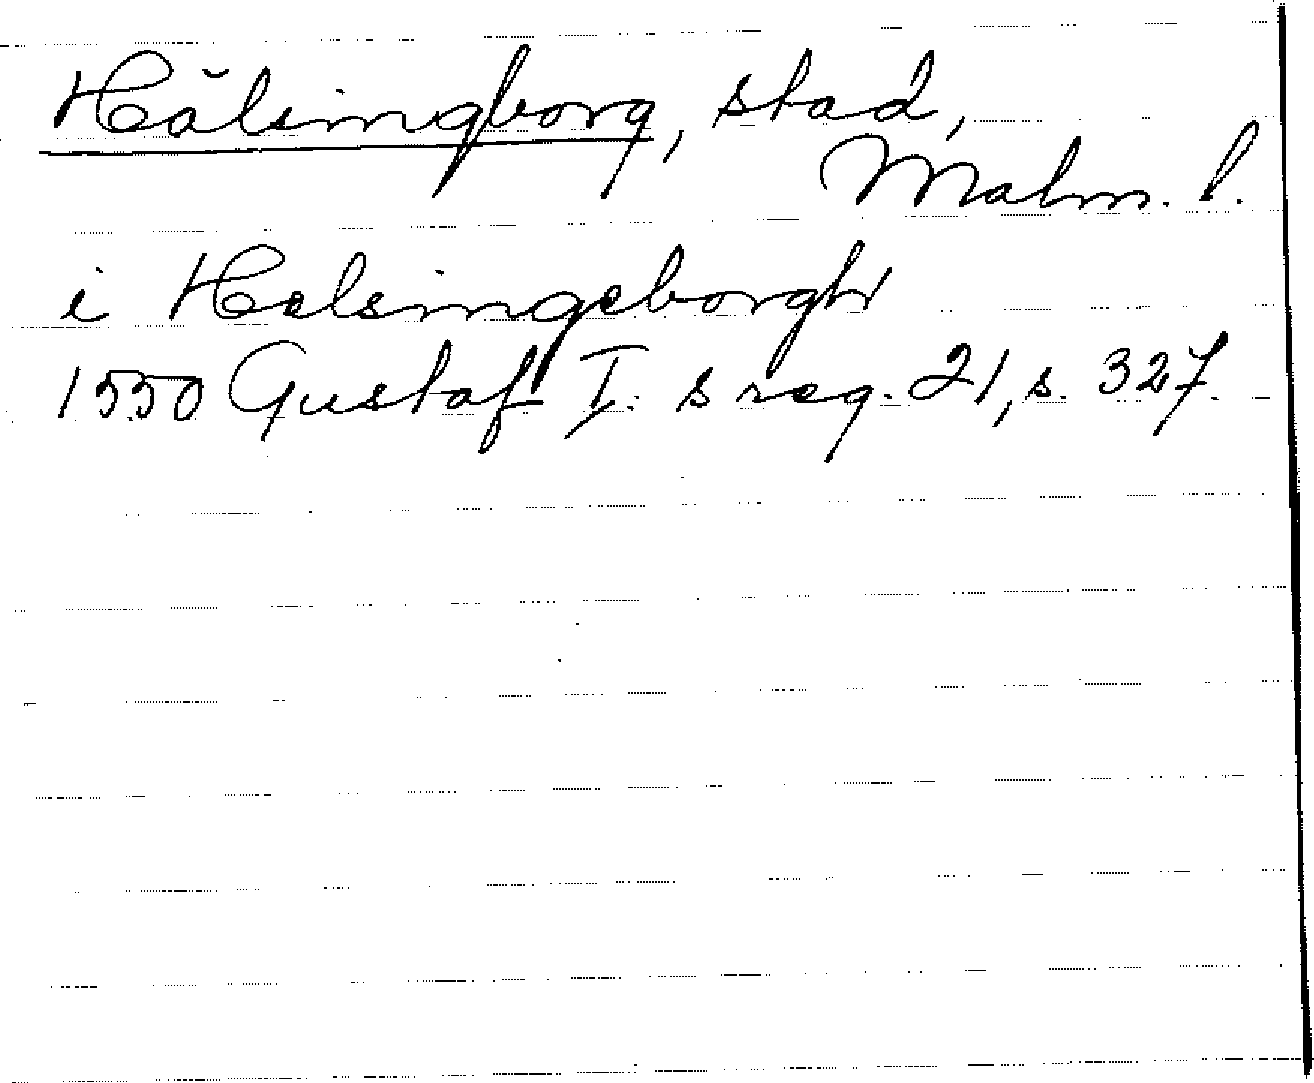 Hälsingborg, stad,
Malm. l.
i Helsingeborgh
1550 Gustaf I:s reg. 21, s. 327.